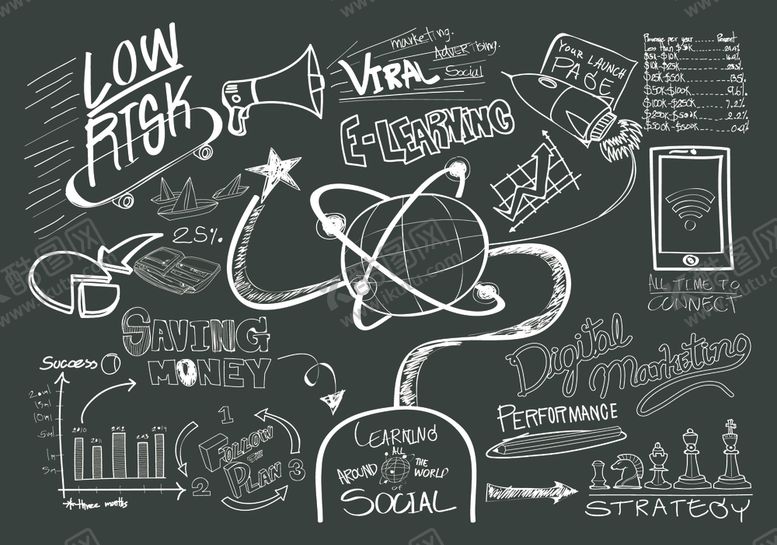 LOW
RISK
marketing.
ADVERTISING.
VIRAL
Social
E-LEARNING
YOUR LAUNCH
PAGE
Revenue per year ...... Percent
Less than $5K
$5K-$10K
$10K-$25K
$25K-$50K
$50K-$100K 9.6%
$100K-$250K 7.2%
$250K-$500K 2.2%
25%
ALL TIME TO
CONNECT
SAVING
MONEY
Success
2010
2011
2012
2013
2014
three months
1
2
3
FOLLOW
THE
PLAN
LEARNING
ALL
AROUND THE WORLD
OF
SOCIAL
Digital
Marketing
PERFORMANCE
STRATEGY